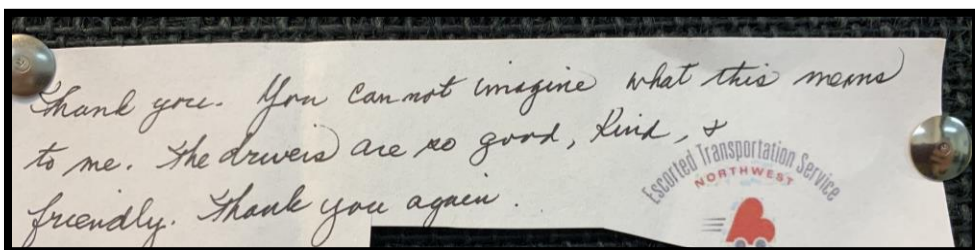 Thank you. You can not imagine what this means
to me. The drivers are so good, kind, &
friendly. Thank you again.
Escorted Transportation Service
NORTHWEST